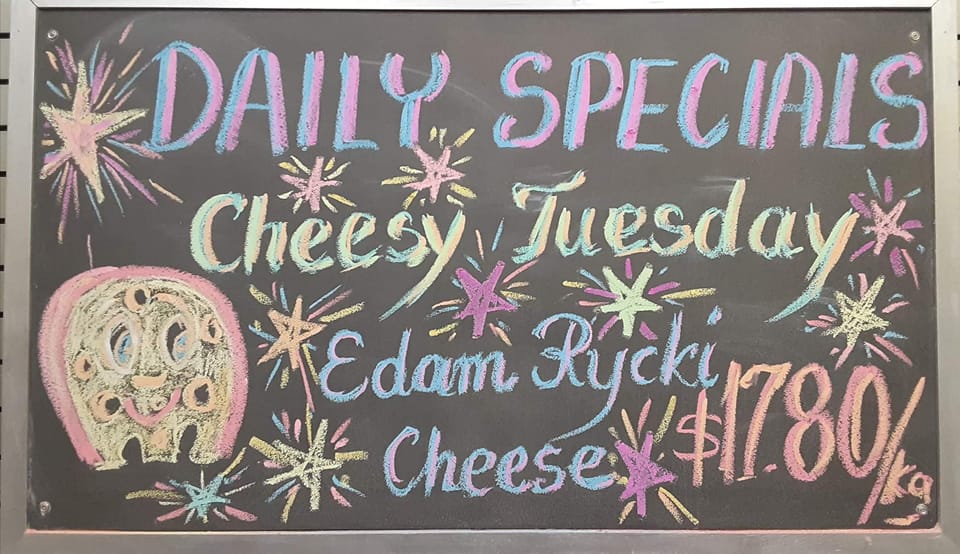 DAILY SPECIALS
Cheesy Tuesday
Edam Rycki
Cheese $17.80/kg